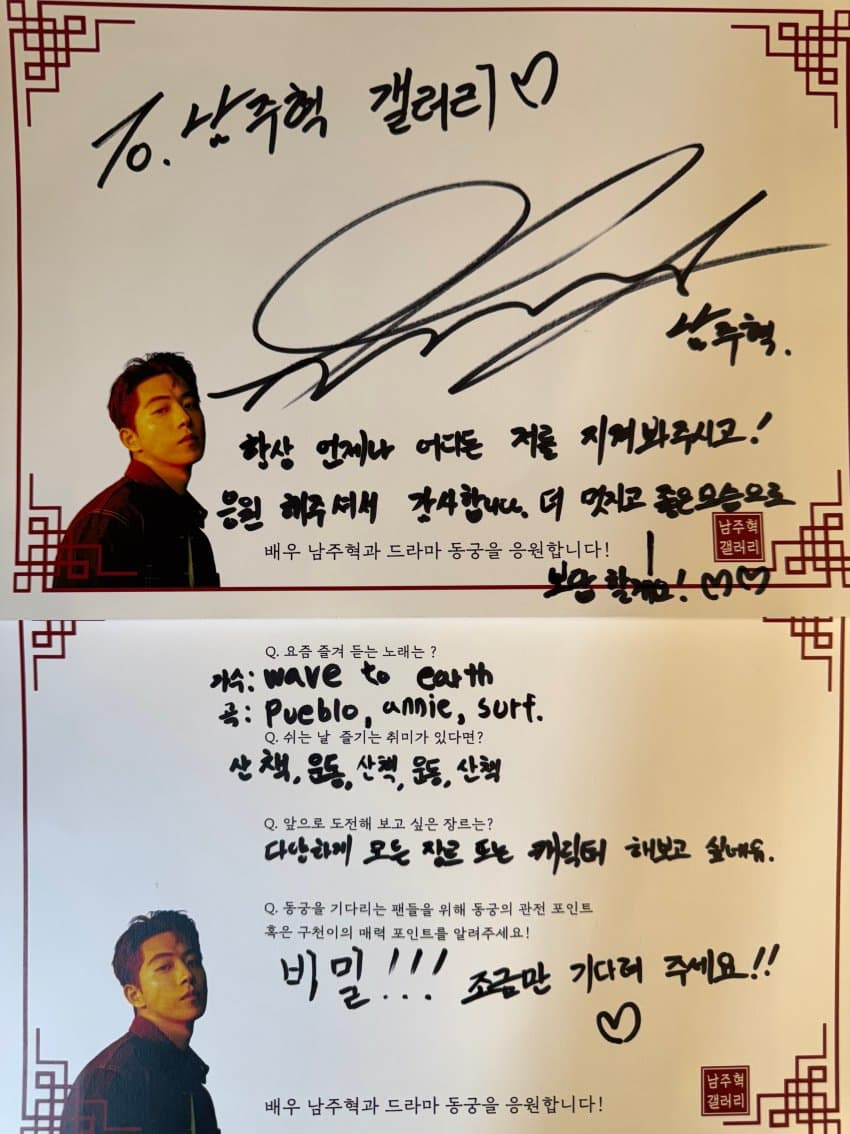 To. 남주혁 갤러리♡
남주혁.
항상 언제나 어디든 저를 지켜봐주시고!
응원 해주셔서 감사합니다. 더 멋지고 좋은모습으로
배우 남주혁과 드라마 동궁을 응원합니다!
남주혁
갤러리
보답 할게요! ♡♡
Q. 요즘 즐겨 듣는 노래는?
가수: wave to earth
곡: Pueblo, annie, surf.
Q. 쉬는 날 즐기는 취미가 있다면?
산책, 운동, 산책, 운동, 산책
Q. 앞으로 도전해 보고 싶은 장르는?
다양하게 모든 장르 또는 캐릭터 해보고 싶네유.
Q. 동궁을 기다리는 팬들을 위해 동궁의 관전 포인트
혹은 구천이의 매력 포인트를 알려주세요!
비밀!!! 조금만 기다려 주세요!!
♡
남주혁
갤러리
배우 남주혁과 드라마 동궁을 응원합니다!